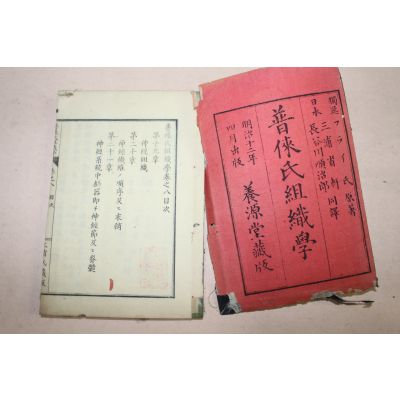 獨逸 フライ氏 原著
三浦省軒 同譯
日本 長谷川順治郎
普俠氏組織學
明治十二年
四月出版
養源堂藏版
普俠氏組織學卷之八目次
第十九章
神經組織
第二十章
神經纖維ノ順序及ヒ末梢
第二十一章
神經系統中
神經節及ヒ脊髓